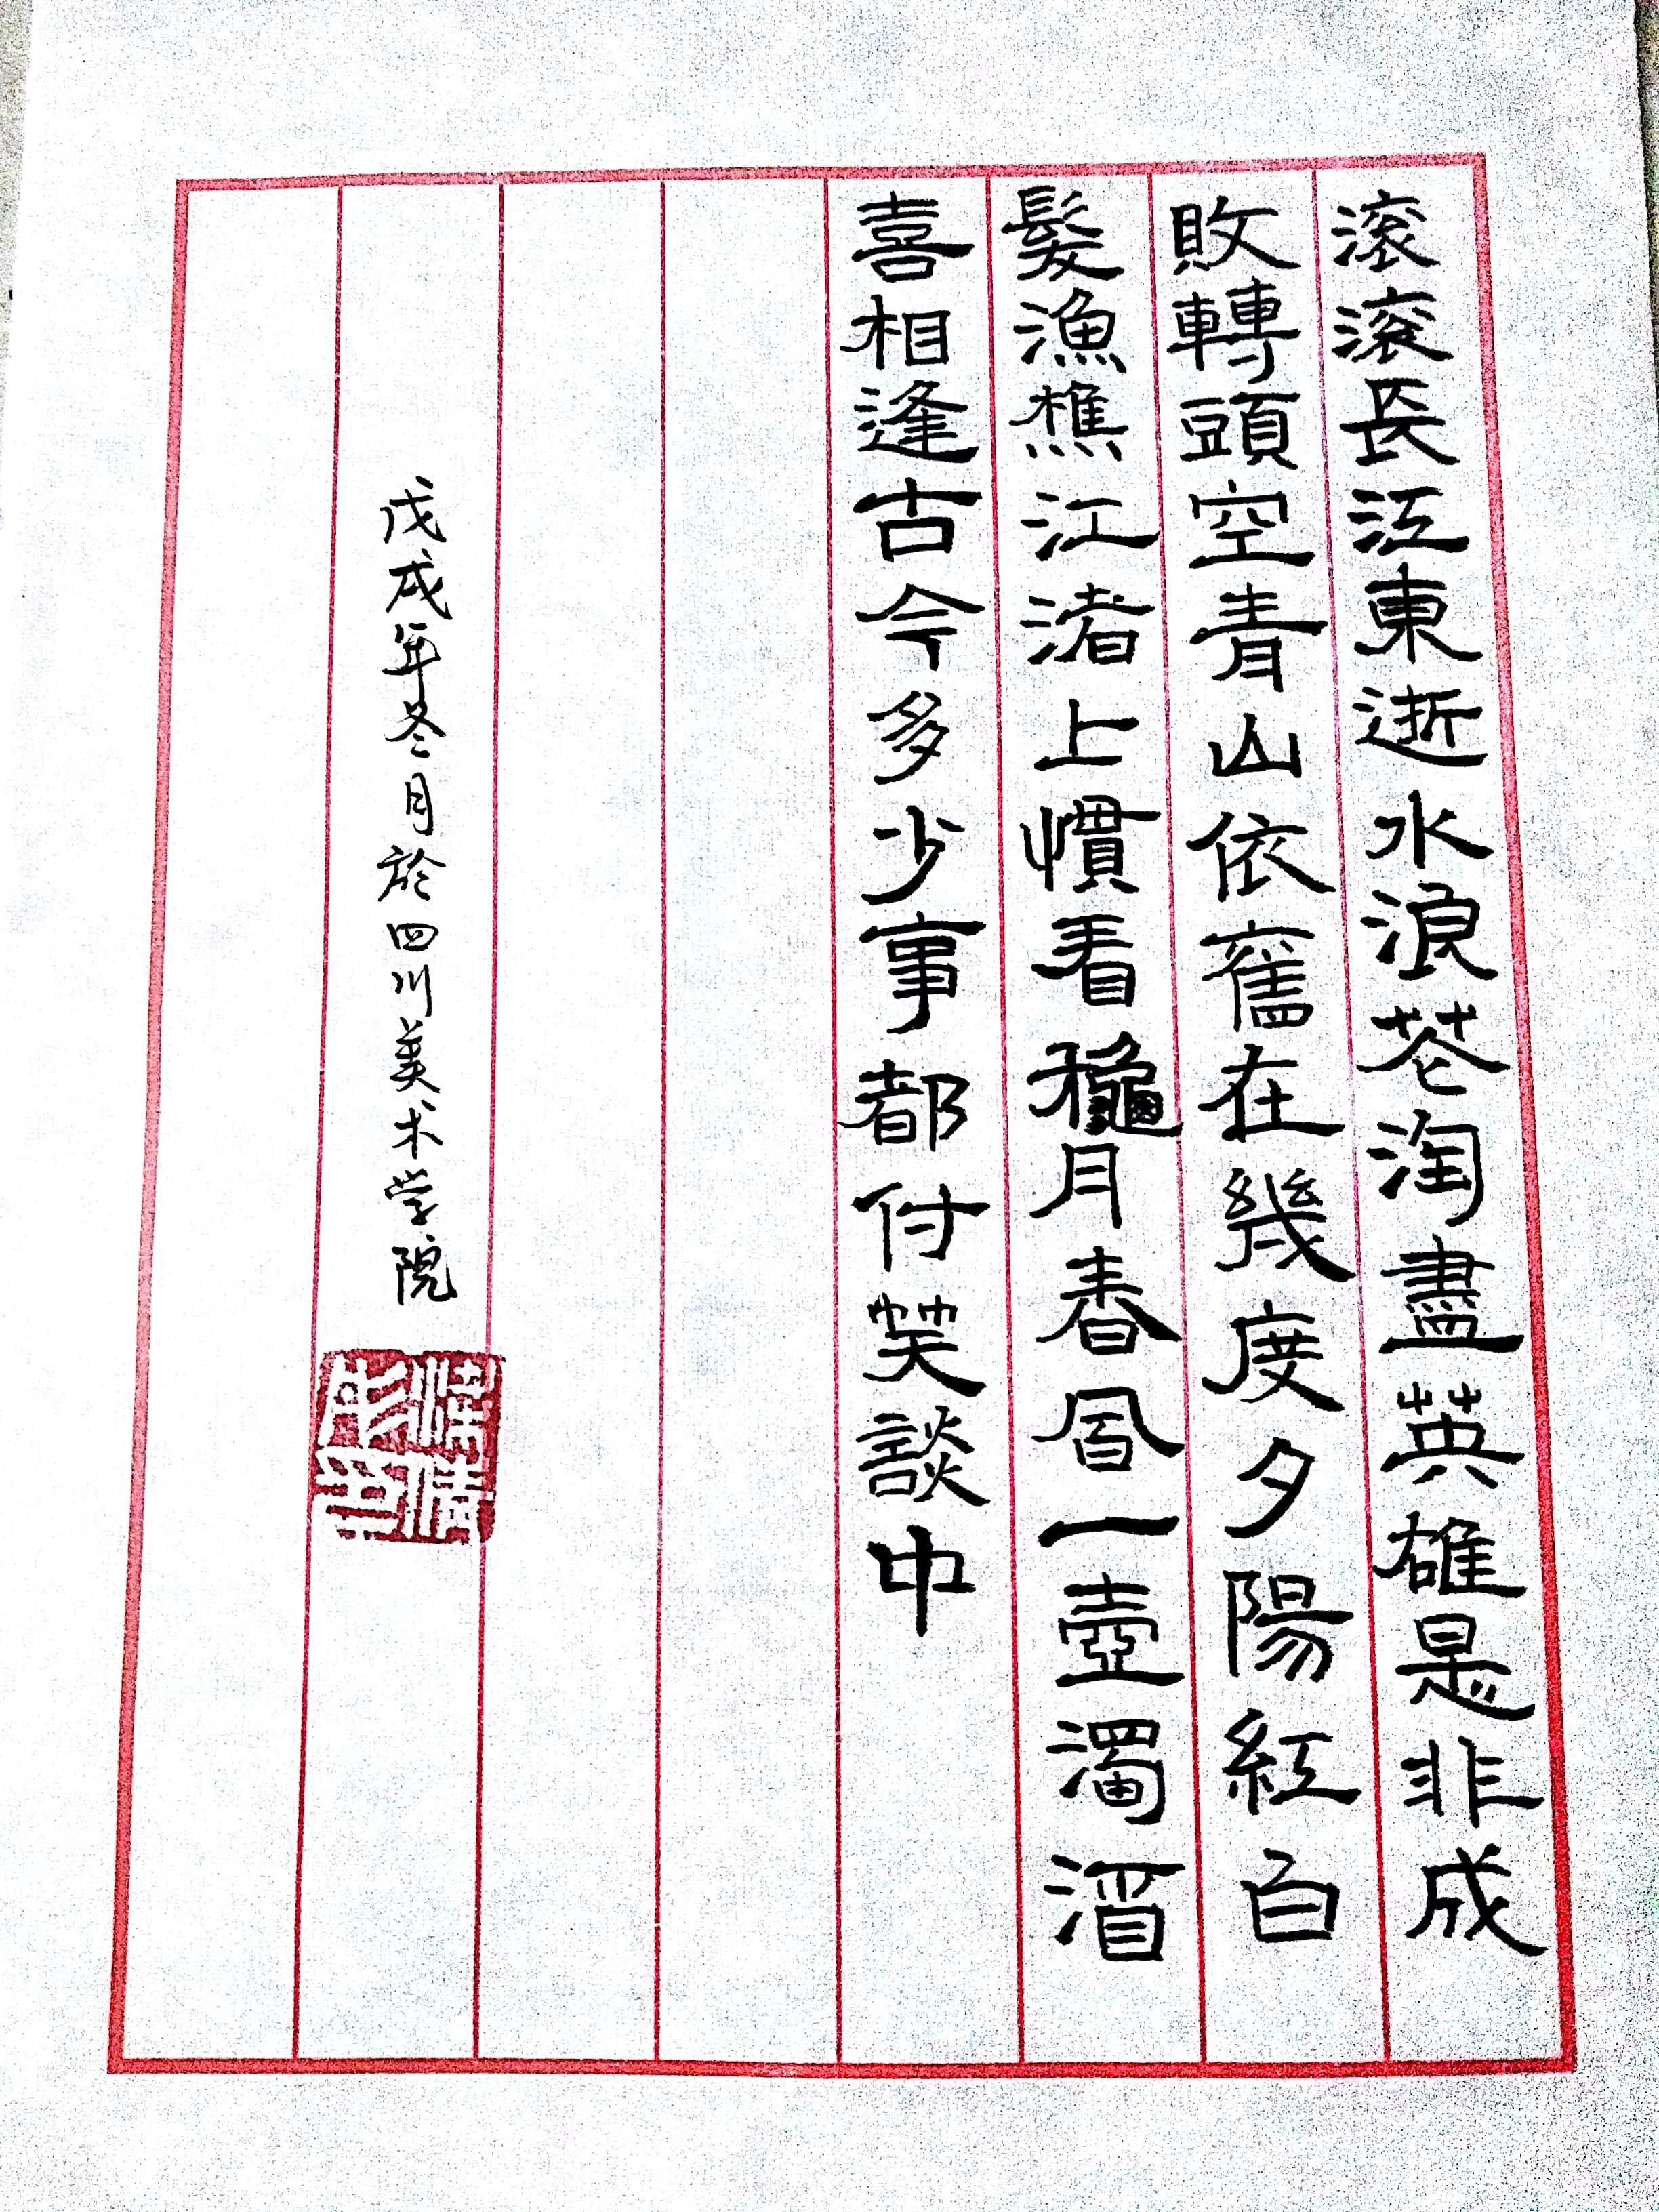 滚滚長江東逝水浪花淘盡英雄是非成
敗轉頭空青山依舊在幾度夕陽紅白
髮漁樵江渚上慣看龝月春風一壺濁酒
喜相逢古今多少事都付笑談中
戊戌年冬月於四川美术学院